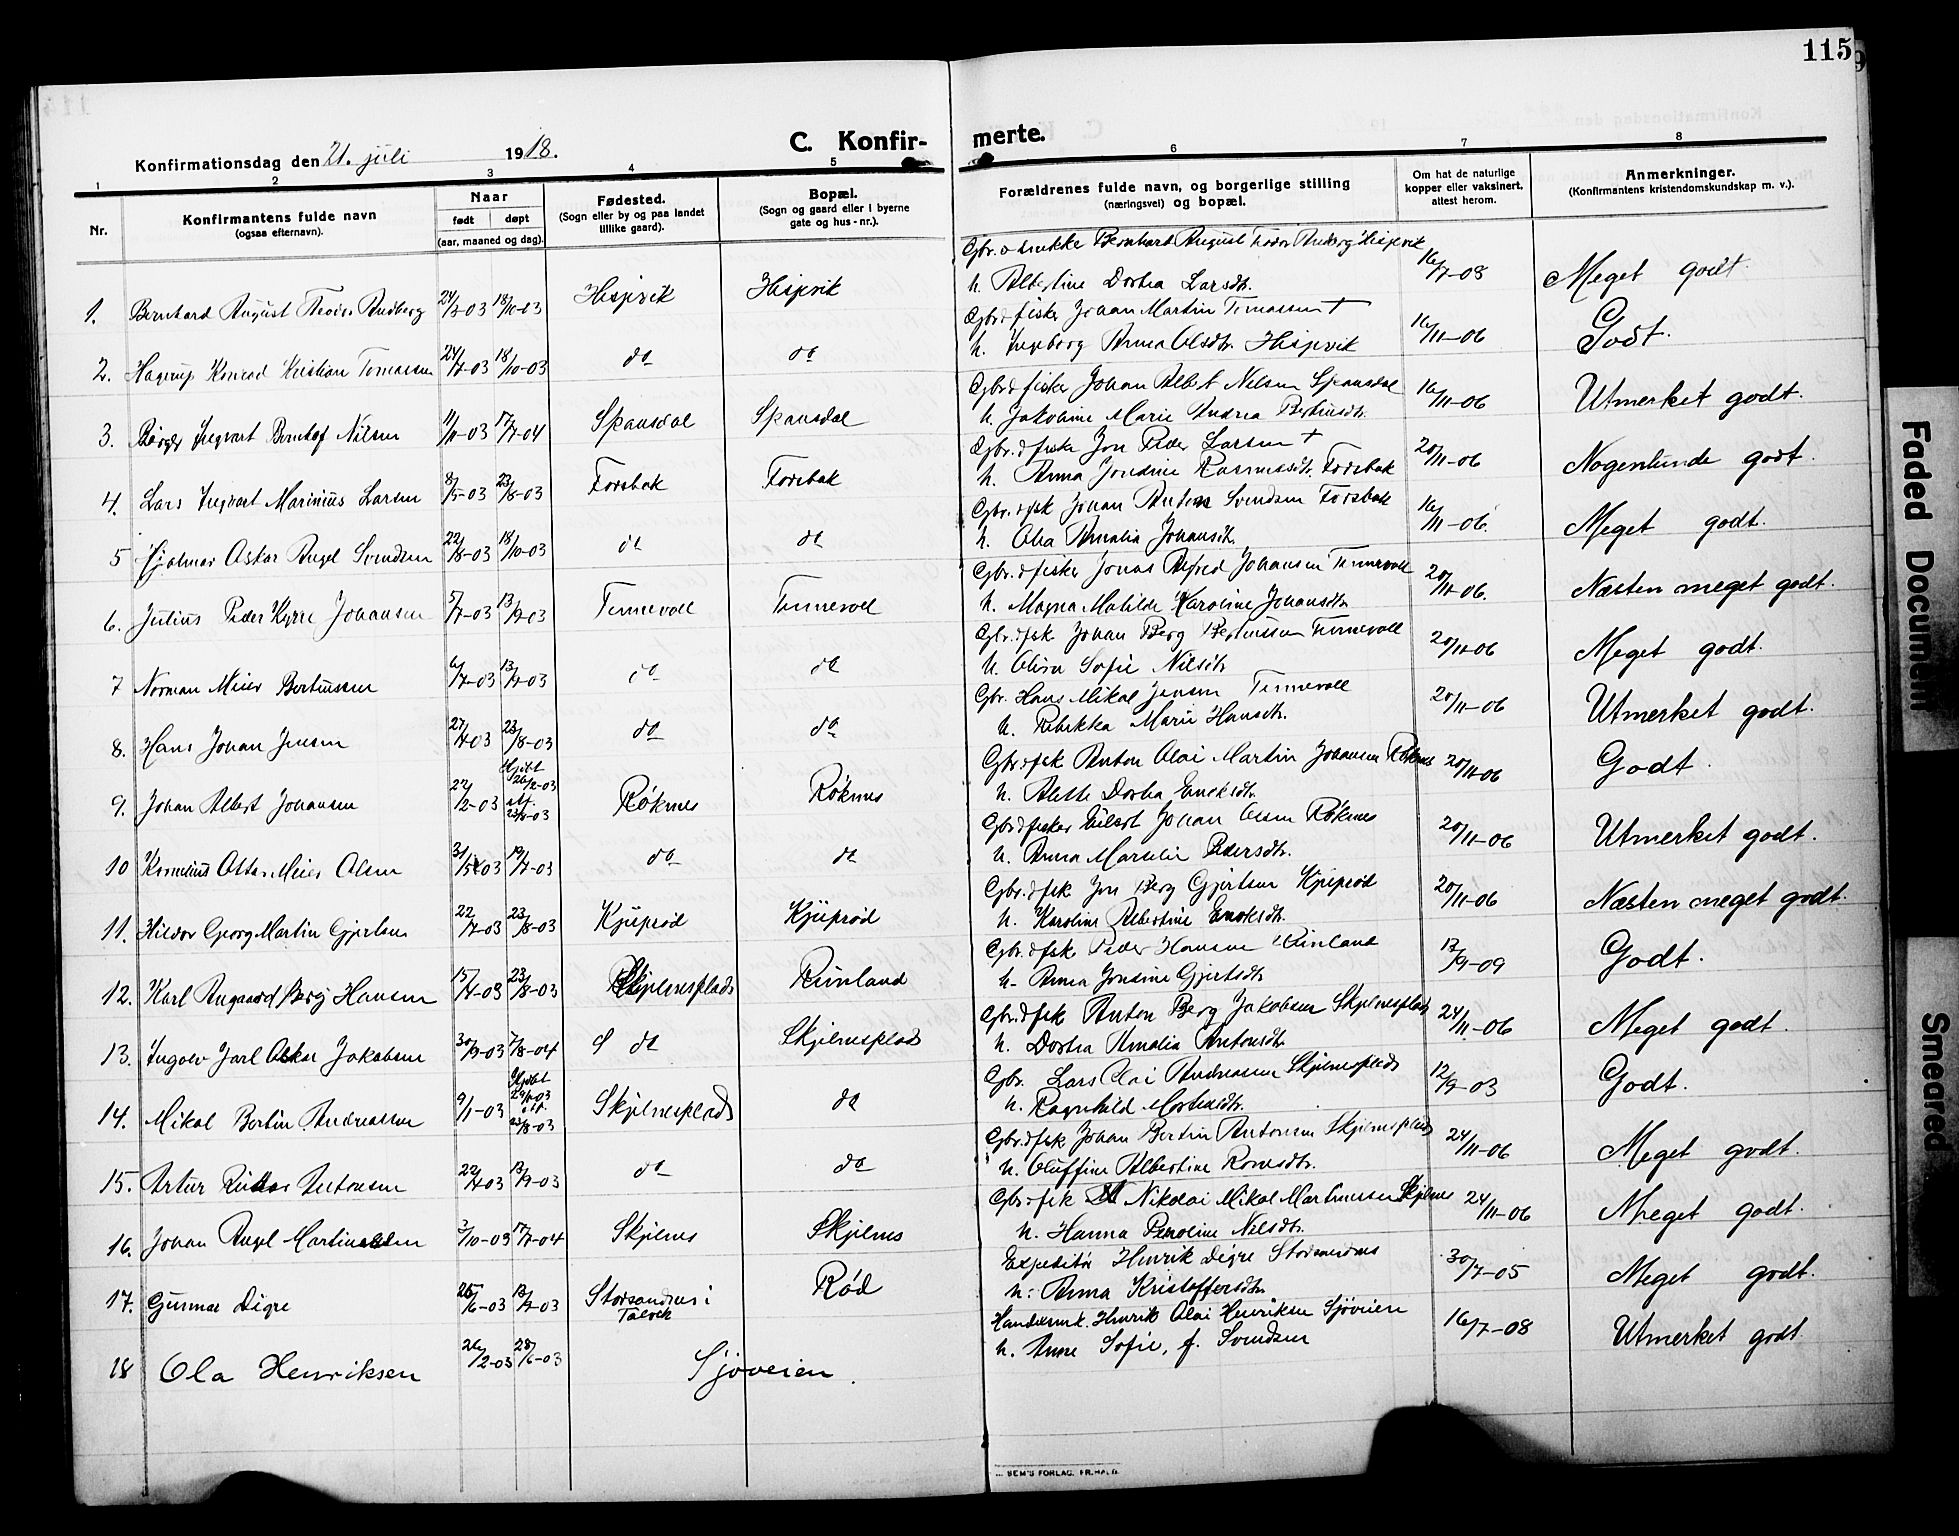 115
Konfirmationsdag den 21. juli 1918.
C. Konfir-
merte.
1 2 3 4 5 6 7 8
Nr.
Konfirmantens fulde navn
(ogsaa efternavn).
Naar
født døpt
(aar, maaned og dag).
Fødested.
(Sogn eller by og paa landet
tillike gaard).
Bopæl.
(Sogn og gaard eller i byerne
gate og hus-nr.).
Forældrenes fulde navn, og borgerlige stilling
(næringsvei) og bopæl.
Om hat de naturlige
kopper eller vaksinert,
attest herom.
Anmerkninger.
(Konfirmantens kristendomskundskap m. v.).
Gbr. Bernhard August
1. Bernhard August 24/2-03 18/10-03 Hisjevik Hisjevik h. Albertine Dorthea Larsdtr. 16/7-08 Meget godt.
Gbr. & fisker Johan Martin Tomassen +
2. Hagerup Konrad Kristian Tomassen 24/7-03 18/10-03 do do h. Ingeborg Anna Olsdtr. Hisjevik 16/11-06 Godt.
Gbr. & fisker Johan Albert Nilsen Spansdal
3. Ingvart Nilsen 11/11-03 17/7-04 Spansdal Spansdal h. Jakobine Marie Andrea Bertinsdtr. 16/11-06 Utmerket godt.
Gbr. & fisker Jon Peder Larsen +
4. Lars Ingvart Marinius Larsen 8/5-03 23/8-03 Forsbak Forsbak h. Anna Jondine Rasmusdtr. Forsbak 20/11-06 Nogenlunde godt.
Gbr. & fisk Johan Anders Svendsen Forsbak
5 Hjalmar Oskar Angel Svendsen 22/8-03 18/10-03 do do h. Amalia Johansdtr. 16/11-06. Meget godt.
Gbr. & fisker Jonas Alfred Johansen Tennevoll
6. Julius Peder Kyrre Johansen 5/7-03 13/9-03 Tennevoll Tennevoll h. Magna Matilde Karoline Johansdtr. 20/11-06. Næsten meget godt.
Gbr. & fsk Johan Berg Bertinussen Tennevoll
7 Norman Meier Bertinussen 6/7-03 13/9-03 do do h. Sofie Nilsdtr. 20/11-06 Meget godt.
Gbr. Hans Mikal Jensen Tennevoll
8. Hans Johan Jensen 27/4-03 23/8-03 do do h. Rebekka Marie Hansdtr. 20/11-06 Utmerket godt.
Gbr. & fsk Anton Olai Martin Johansen Røknes
9. Johan Albert Johansen 22/2-03 Hjdbt 23/8-03 Røknes Røknes h. Alette Dorthea 20/11-06 Godt.
Gbr & fisker Johan Olsen Røknes
10 Kornelius Ottar Meier Olsen 31/5-03 19/7-03 do do h. Anna Marselie Pedersdtr. 20/11-06 Utmerket godt.
Gbr. & fsk Jon Berg Gjertsen Kjeiprød
11. Hildor Georg Martin Gjertsen 22/7-03 23/8-03 Kjeiprød Kjeiprød h. Karoline Albertine 20/11-06 Næsten meget godt.
Gbr. & fsk Peder Hansen
12. Karl Berg Hansen 15/4-03 23/8-03 Skjelnesplads h. Anna Jonsine Gjertsdtr. 17/9-09 Godt.
Gbr. & fsk Anton Berg Jakobsen Skjelnesplads
13. Ingolv Jarl Oskar Jakobsen 30/9-03 7/8-04 do Skjelnesplads h. Dorthea Amalia Antonsdtr. 24/11-06 Meget godt.
Gbr. Lars Olai Andreassen Skjelnesplads
14. Mikal Bertin Andreassen 9/1-03 Hjdbt 23/8-03 Skjelnesplads do h. Ragnhild Mortensdtr. 12/9-03 Godt.
Gbr. & fsk Johan Bertin Antonsen Skjelnesplads
15. Artur Antonsen 22/4-03 13/9-03 do do h. Oluffine Albertine 24/11-06 Meget godt.
Gbr. & fsk Nikolai Mikal Martinussen Skjelnes
16. Johan Angel Martinussen 3/10-03 17/7-04 Skjelnes Skjelnes h. Hanna Peroline Nilsdtr. 24/11-06 Meget godt.
Expeditør Henrik Digre
17. Gunnar Digre 25/6-03 Storsandnes i Talvik Rød h. Anna Kristoffersdtr. 30/7-05 Meget godt.
Henrik Olai Henriksen Sjøveien
18 Ola Henriksen 26/2-03 28/6-03 Sjøveien. h. Anne Sofie, f. Svendsen 16/7-08 Utmerket godt.
SEM'S FORLAG. FR.HALD.
Faded Document
Smeared